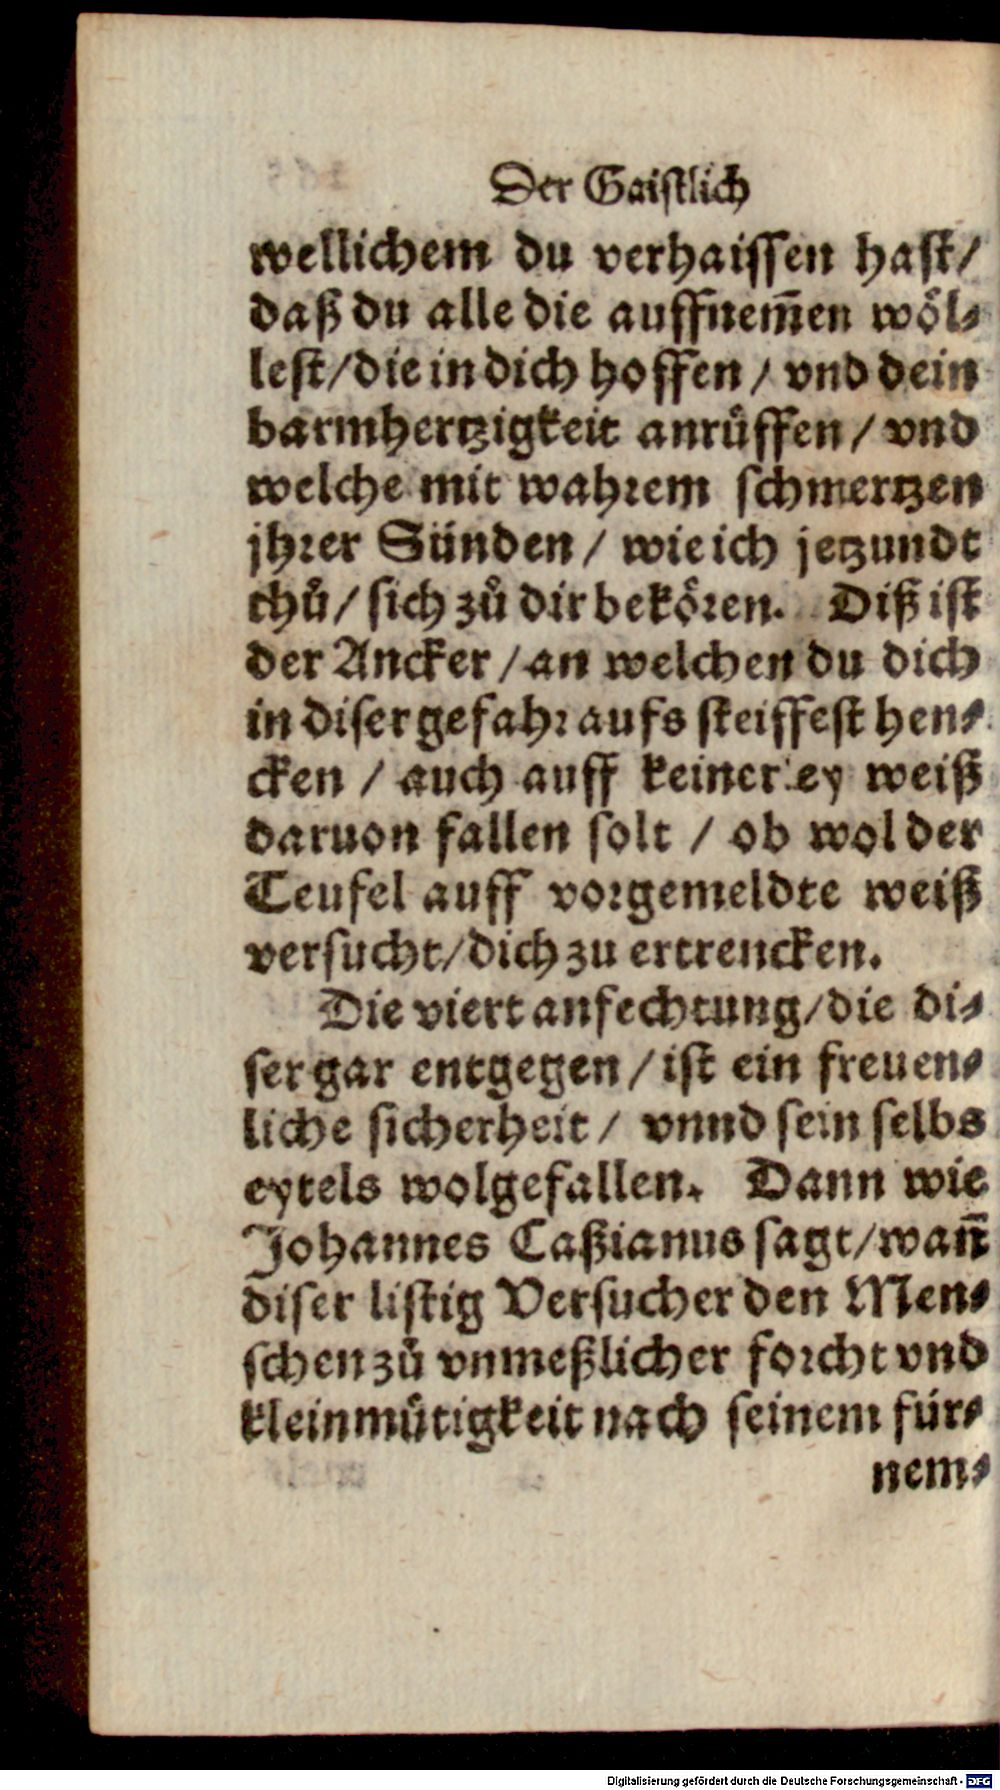 Der Gaistlich
wellichem du verhaissen hast/
daß du alle die auffnem̃en wöl⸗
lest/die in dich hoffen / vnd dein
barmhertzigkeit anrůffen / vnd
welche mit wahrem schmertzen
jhrer Sünden / wie ich jetzundt
thů/ sich zů dir bekören. Diß ist
der Ancker / an welchen du dich
in diser gefahr aufs steiffest hen⸗
cken / auch auff keinerley weiß
daruon fallen solt / ob wol der
Teufel auff vorgemeldte weiß
versucht/dich zu ertrencken.
Die viert anfechtung/die di⸗
ser gar entgegen / ist ein freuen⸗
liche sicherheit / vnnd sein selbs
eytels wolgefallen. Dann wie
Johannes Caßianus sagt/wañ
diser listig Versucher den Men⸗
schen zů vnmeßlicher forcht vnd
kleinmůtigkeit nach seinem für⸗
nem⸗
Digitalisierung gefördert durch die Deutsche Forschungsgemeinschaft - DFG